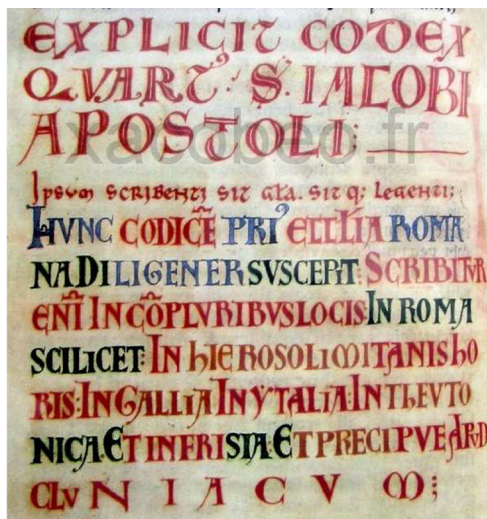 EXPLICIT CODEX
QVARTꝰ: S. IACOBI
APOSTOLI:
xacobeo.fr
Ipsum scribenti sit gl̄a. sit q; legenti;
HVNC CODICẼ PRIꝰ ECCL̄IA ROMA
NA DILIGENER SVSCEPIT: SCRIBITUR
ENĨ IN CÕPLVRIBVS LOCIS: IN ROMA
SCILICET: IN HIEROSOLIMITANIS HO
RIS: IN GALLIA IN YTALIA: IN THEVTO
NICA: ET IN FRISIA: ET PRECIPVE APUD
CLVNIACVM: